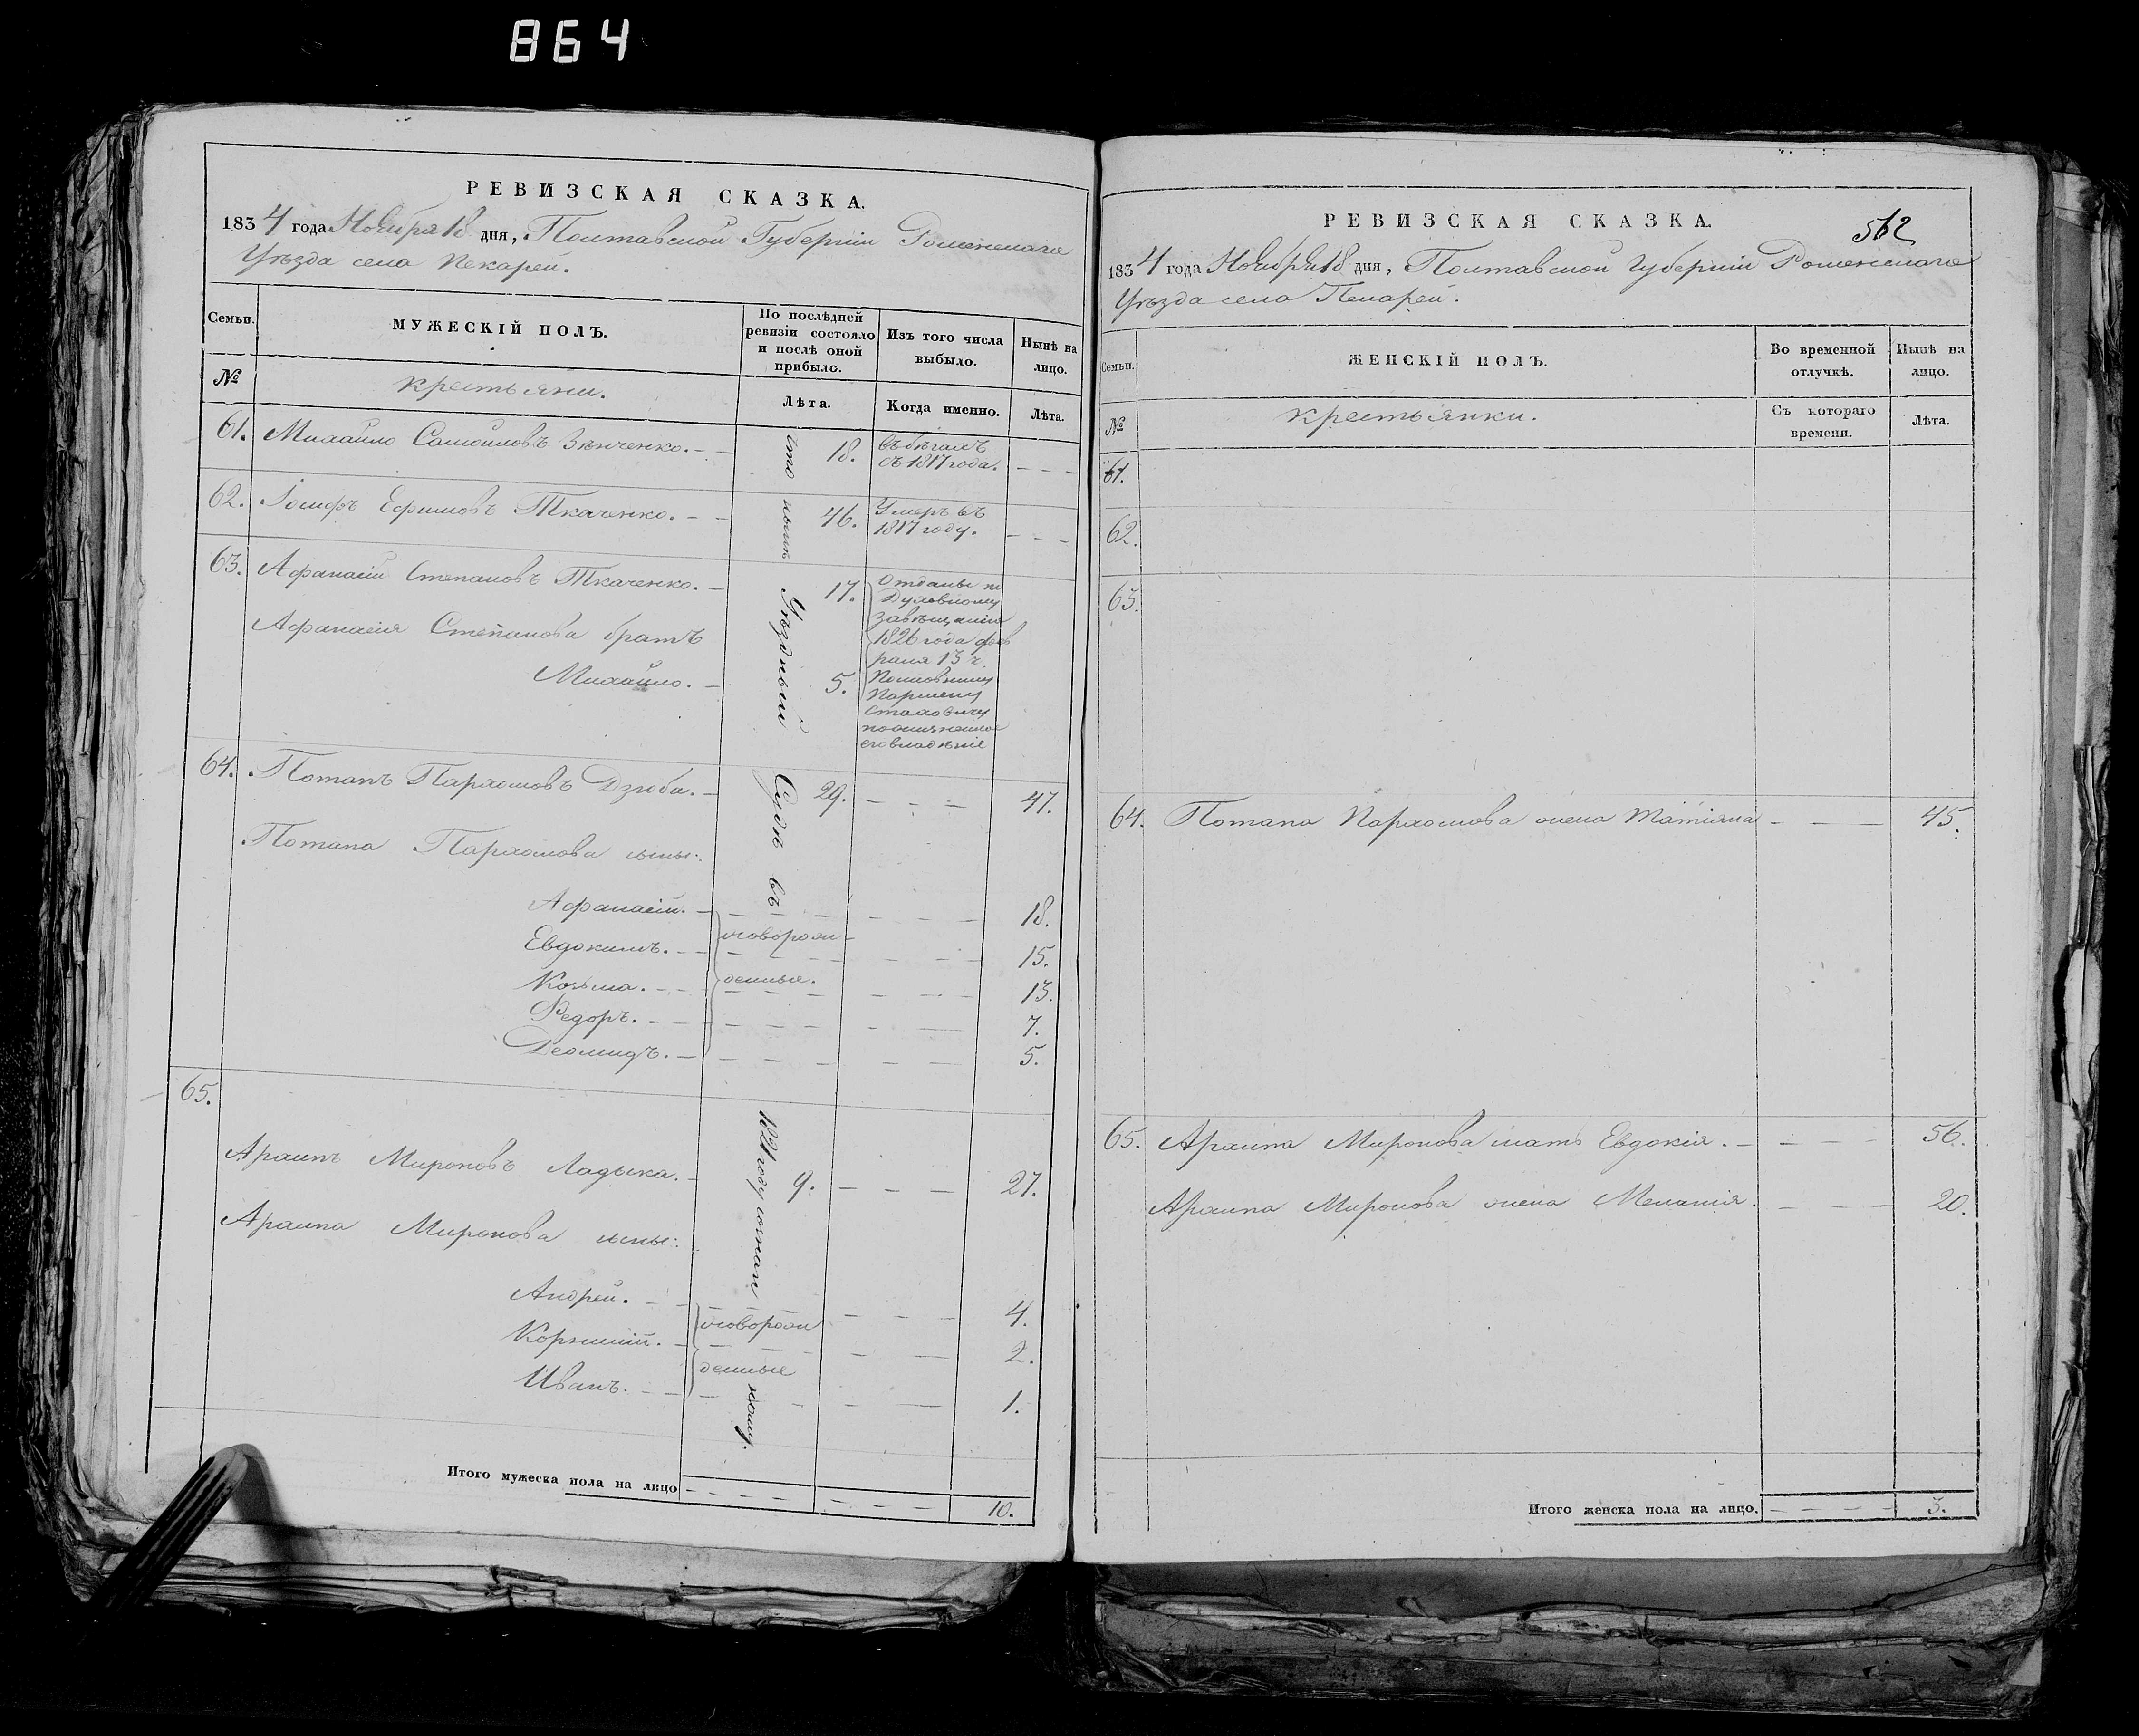 864
РЕВИЗСКАЯ СКАЗКА.
1834 года Ноября 18 дня, Полтавской Губерніи Роменскаго
Уѣзда села Пекарей.
Семьи.
МУЖЕСКІЙ ПОЛЪ.
По послѣдней ревизіи состояло и послѣ оной прибыло.
Изъ того числа выбыло.
Нынѣ на лицо.
№
крестьяни.
Лѣта.
Когда именно.
Лѣта.
61. Михайло Самойловъ Зѣнченко. 18. въ бѣгахъ
съ 1817 года.
62. Іосифъ Ефимовъ Ткаченко. 46. Умеръ въ
1817 году.
63. Афанасій Степановъ Ткаченко. 17. Отданы по
Духовному
завѣщанію
1826 года фев
раля 13 ч.
Афанасія Степанова братъ
Михайло. 5.
Стаховичу
его владѣніе
64. Потапъ Пархомовъ Дзюба. 29. 47.
Потапа Пархомова сыны:
Афанасій. 18.
Евдокимъ. новорож 15.
Козьма. денные. 13.
Федоръ. 7.
Деомидъ. 5.
65.
Архипъ Мироновъ Ладыка. 9. 27.
Архипа Миронова сыны:
Андрей. 4.
Корнилій. новорож 2.
Иванъ. денные 1.
Уѣздный Судъ въ 1821 году
Итого мужеска пола на лицо 10.
РЕВИЗСКАЯ СКАЗКА.
562
1834 года Ноября 18 дня, Полтавской Губерніи Роменскаго
Уѣзда села Пекарей.
Семьи.
ЖЕНСКІЙ ПОЛЪ.
Во временной отлучкѣ.
Нынѣ на лицо.
№
крестьянки.
Съ котораго времени.
Лѣта.
61.
62.
63.
64. Потапа Пархомова жена Татіяна 45.
65. Архипа Миронова мать Евдокія. 56.
Архипа Миронова жена Меланія. 20.
Итого женска пола на лицо. 3.